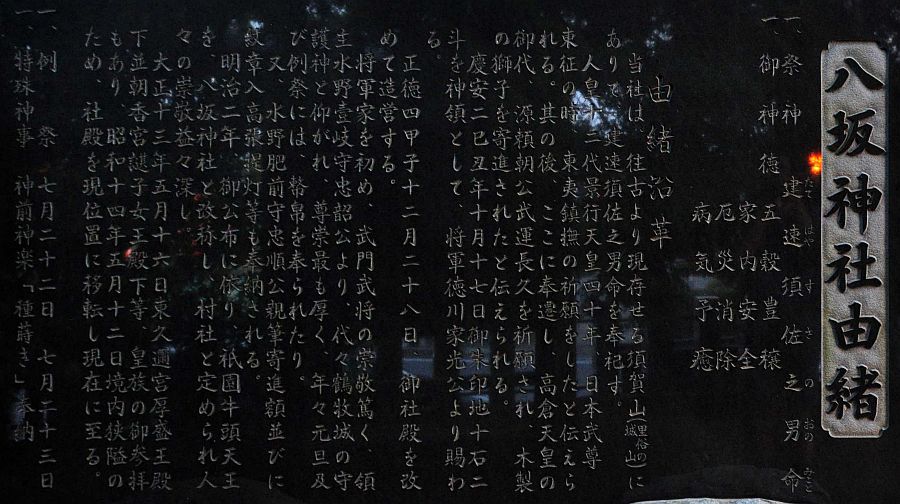 八坂神社由緒
一、祭神 建速須佐之男命
たて はや す さ の おの みこと
一、御神徳 五穀豊穣
家内安全
厄災消除
病気予癒
由緒沿革
当社は、往古より現存せる須賀山(里俗の城山)に
ありて建速須佐之男命を奉祀す。
人皇十二代景行天皇四十年、日本武尊
東征の時、東夷鎮撫の祈願をしたと伝えら
れる。其の後、ここに奉遷し、高倉天皇の
御代、源頼朝公武運長久を祈願され、木製
の獅子を寄進されたと伝えられる。
慶安二己丑年十月十七日御朱印地十石二
斗を神領として、将軍徳川家光公より賜わ
る。
正徳四甲子十二月二十八日、御社殿を改
めて造営する。
将軍家を初め、武門武将の崇敬篤く、領
主水野壹岐守忠韶公より、代々鶴牧城の守
護神と仰がれ、尊崇最も厚く、年々元旦及
び例祭には、幣帛を奉られたり。
又、水野肥前守忠順公親筆寄進額並びに
紋章入高張提灯等も奉納される。
明治二年、御公布に依り、祇園牛頭天王
を、八坂神社と改称し、村社と定められ人
々の崇敬益々深し。
大正十三年五月十六日東久邇宮厚盛王殿
下並朝香宮諶子女王殿下等、皇族の御参拝
もあり、昭和十四年五月十二日境内狭隘の
ため、社殿を現位置に移転し現在に至る。
一、例祭 七月二十二日 七月二十三日
一、特殊神事 神前神楽「種蒔き」奉納